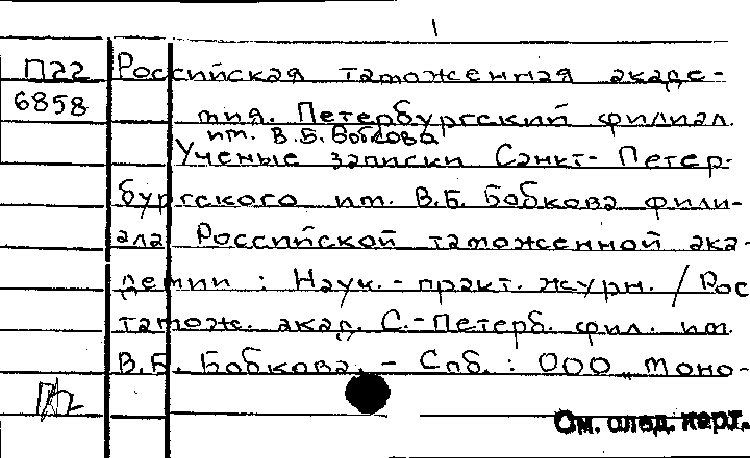 1
П22 Российская таможенная акаде-
6858 мия. Петербургский филиал
им. В.Б. Бобкова
Ученые записки Санкт-Петер-
бургского им. В.Б. Бобкова фили-
ала Российской таможенной ака-
демии : Науч.-практ. журн. / Рос
тамож. акад. С.-Петерб. фил. им.
В.Б. Бобкова. - Спб. : ООО Моно-
См. след. карт.